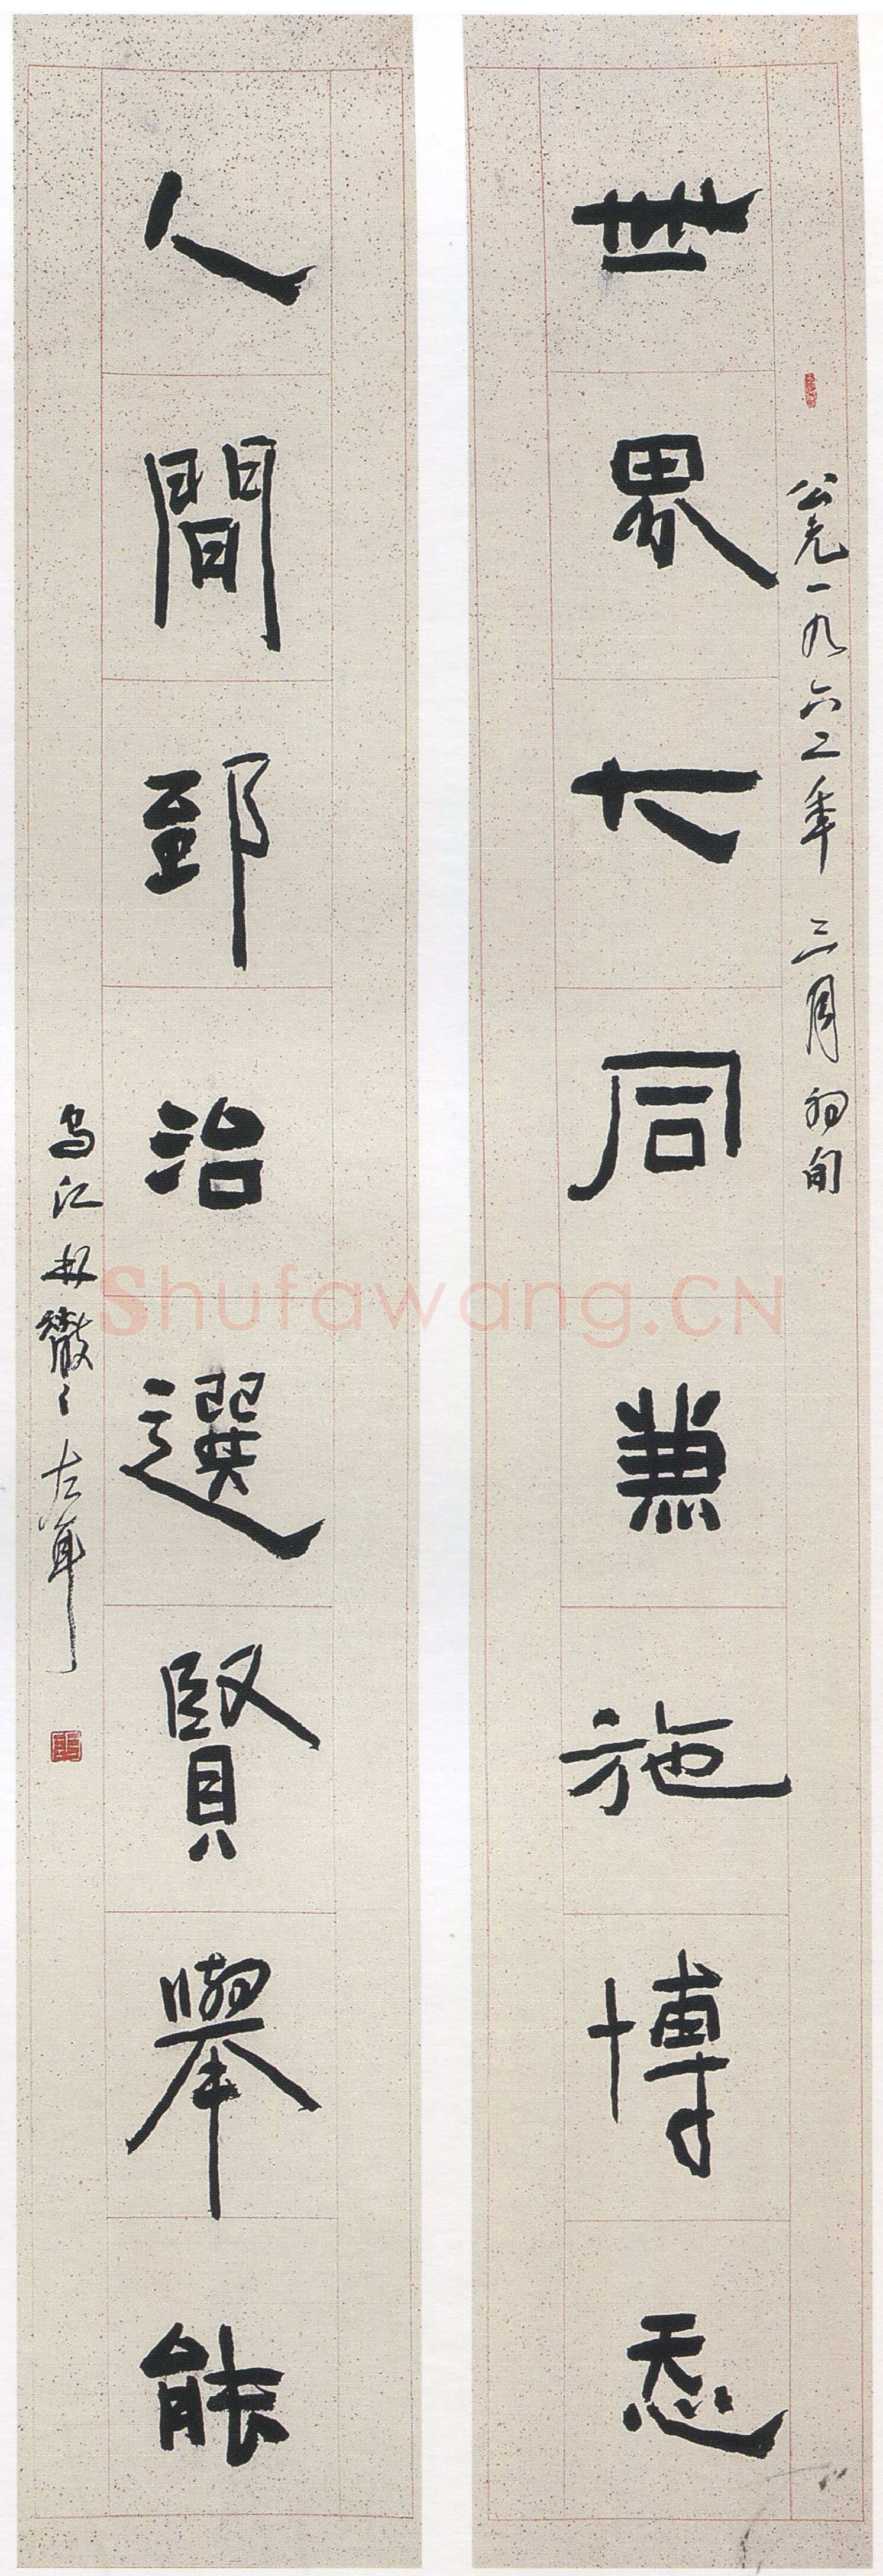 公元一九六二年三月初旬
世界大同兼施博忝
人間郅治選賢舉能
烏江林散々左耳
Shufawang.CN